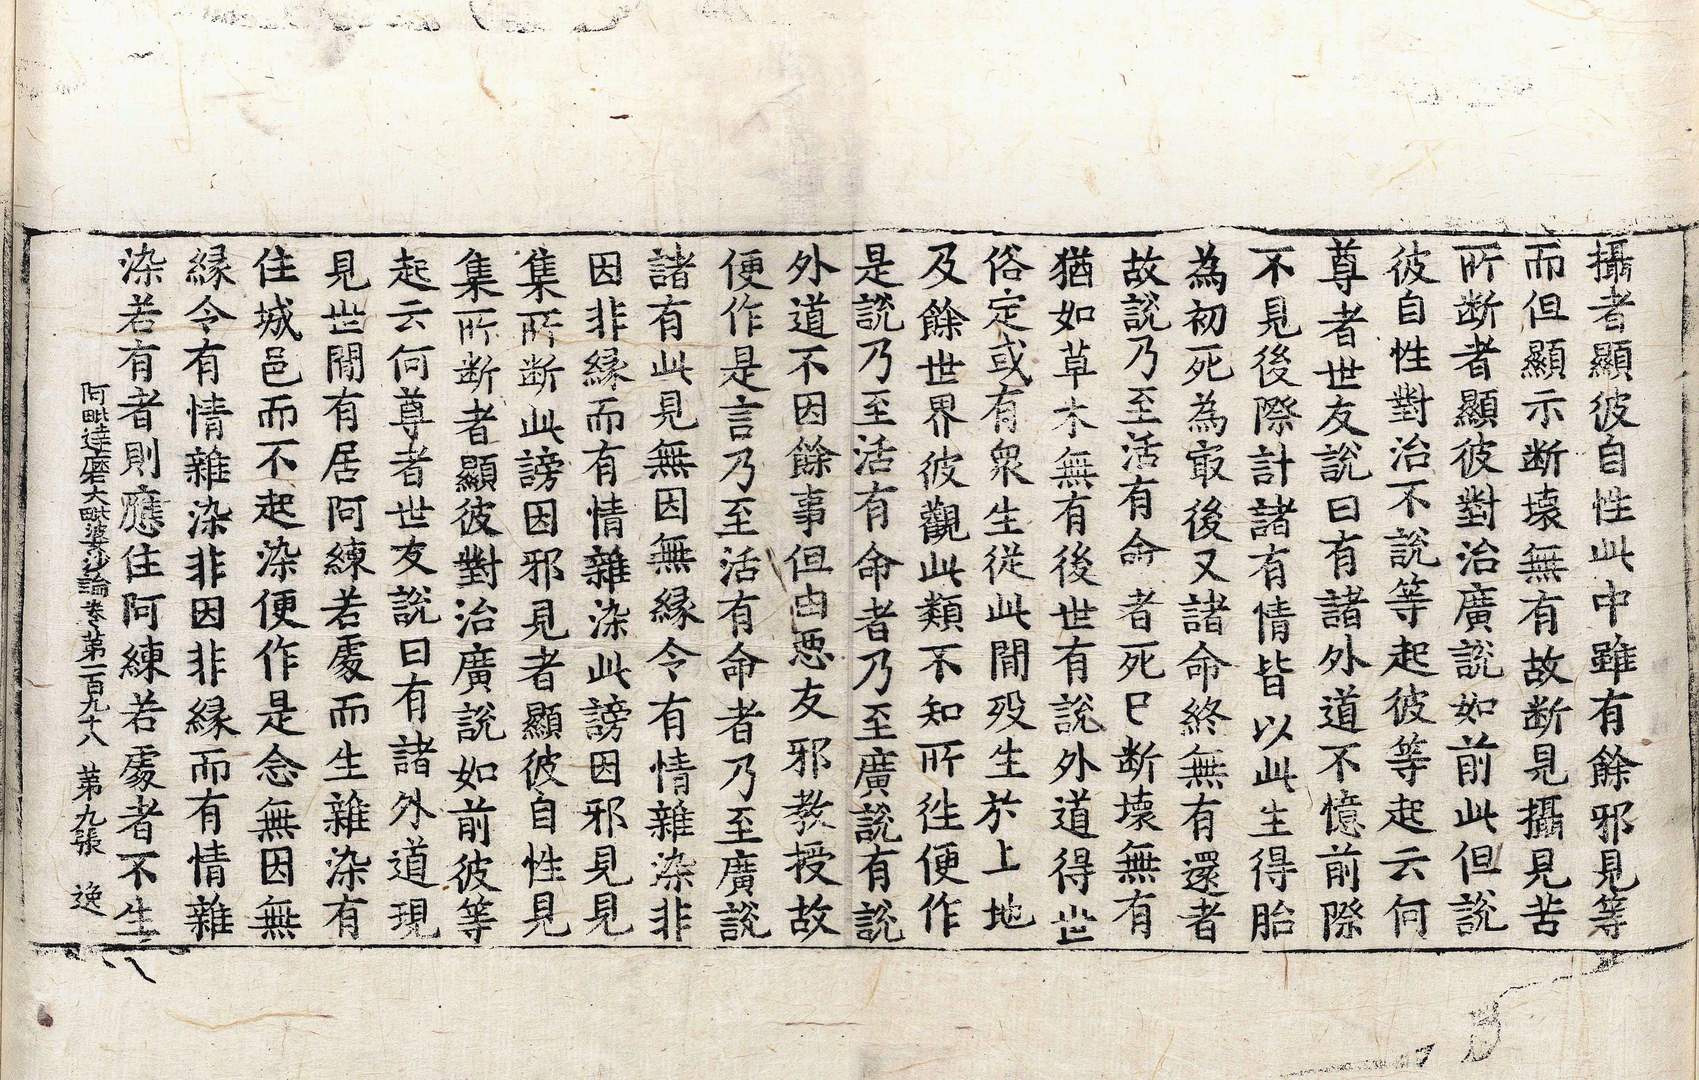 攝者顯彼自性此中雖有餘邪見等
而但顯示断壞無有故断見攝見苦
所断者顯彼對治廣說如前此但說
彼自性對治不說等起彼等起云何
尊者世友說曰有諸外道不憶前際
不見後際計諸有情皆以此生得胎
為初死為㝡後又諸命終無有還者
故說乃至活有命者死已断壞無有
猶如草木無有後世有說外道得世
俗定或有衆生從此間歿生於上地
及餘世界彼觀此類不知所往便作
是說乃至活有命者乃至廣說有說
外道不因餘事但由惡友邪教授故
便作是言乃至活有命者乃至廣說
諸有此見無因無縁令有情雜染非
因非縁而有情雜染此謗因邪見見
集所断此謗因邪見者顯彼自性見
集所断者顯彼對治廣說如前彼等
起云何尊者世友說曰有諸外道現
見世間有居阿練若處而生雜染有
住城邑而不起染便作是念無因無
縁令有情雜染非因非縁而有情雜
染若有者則應住阿練若處者不生
阿毗達磨大毗婆沙論卷第一百九十八 第九張 逸